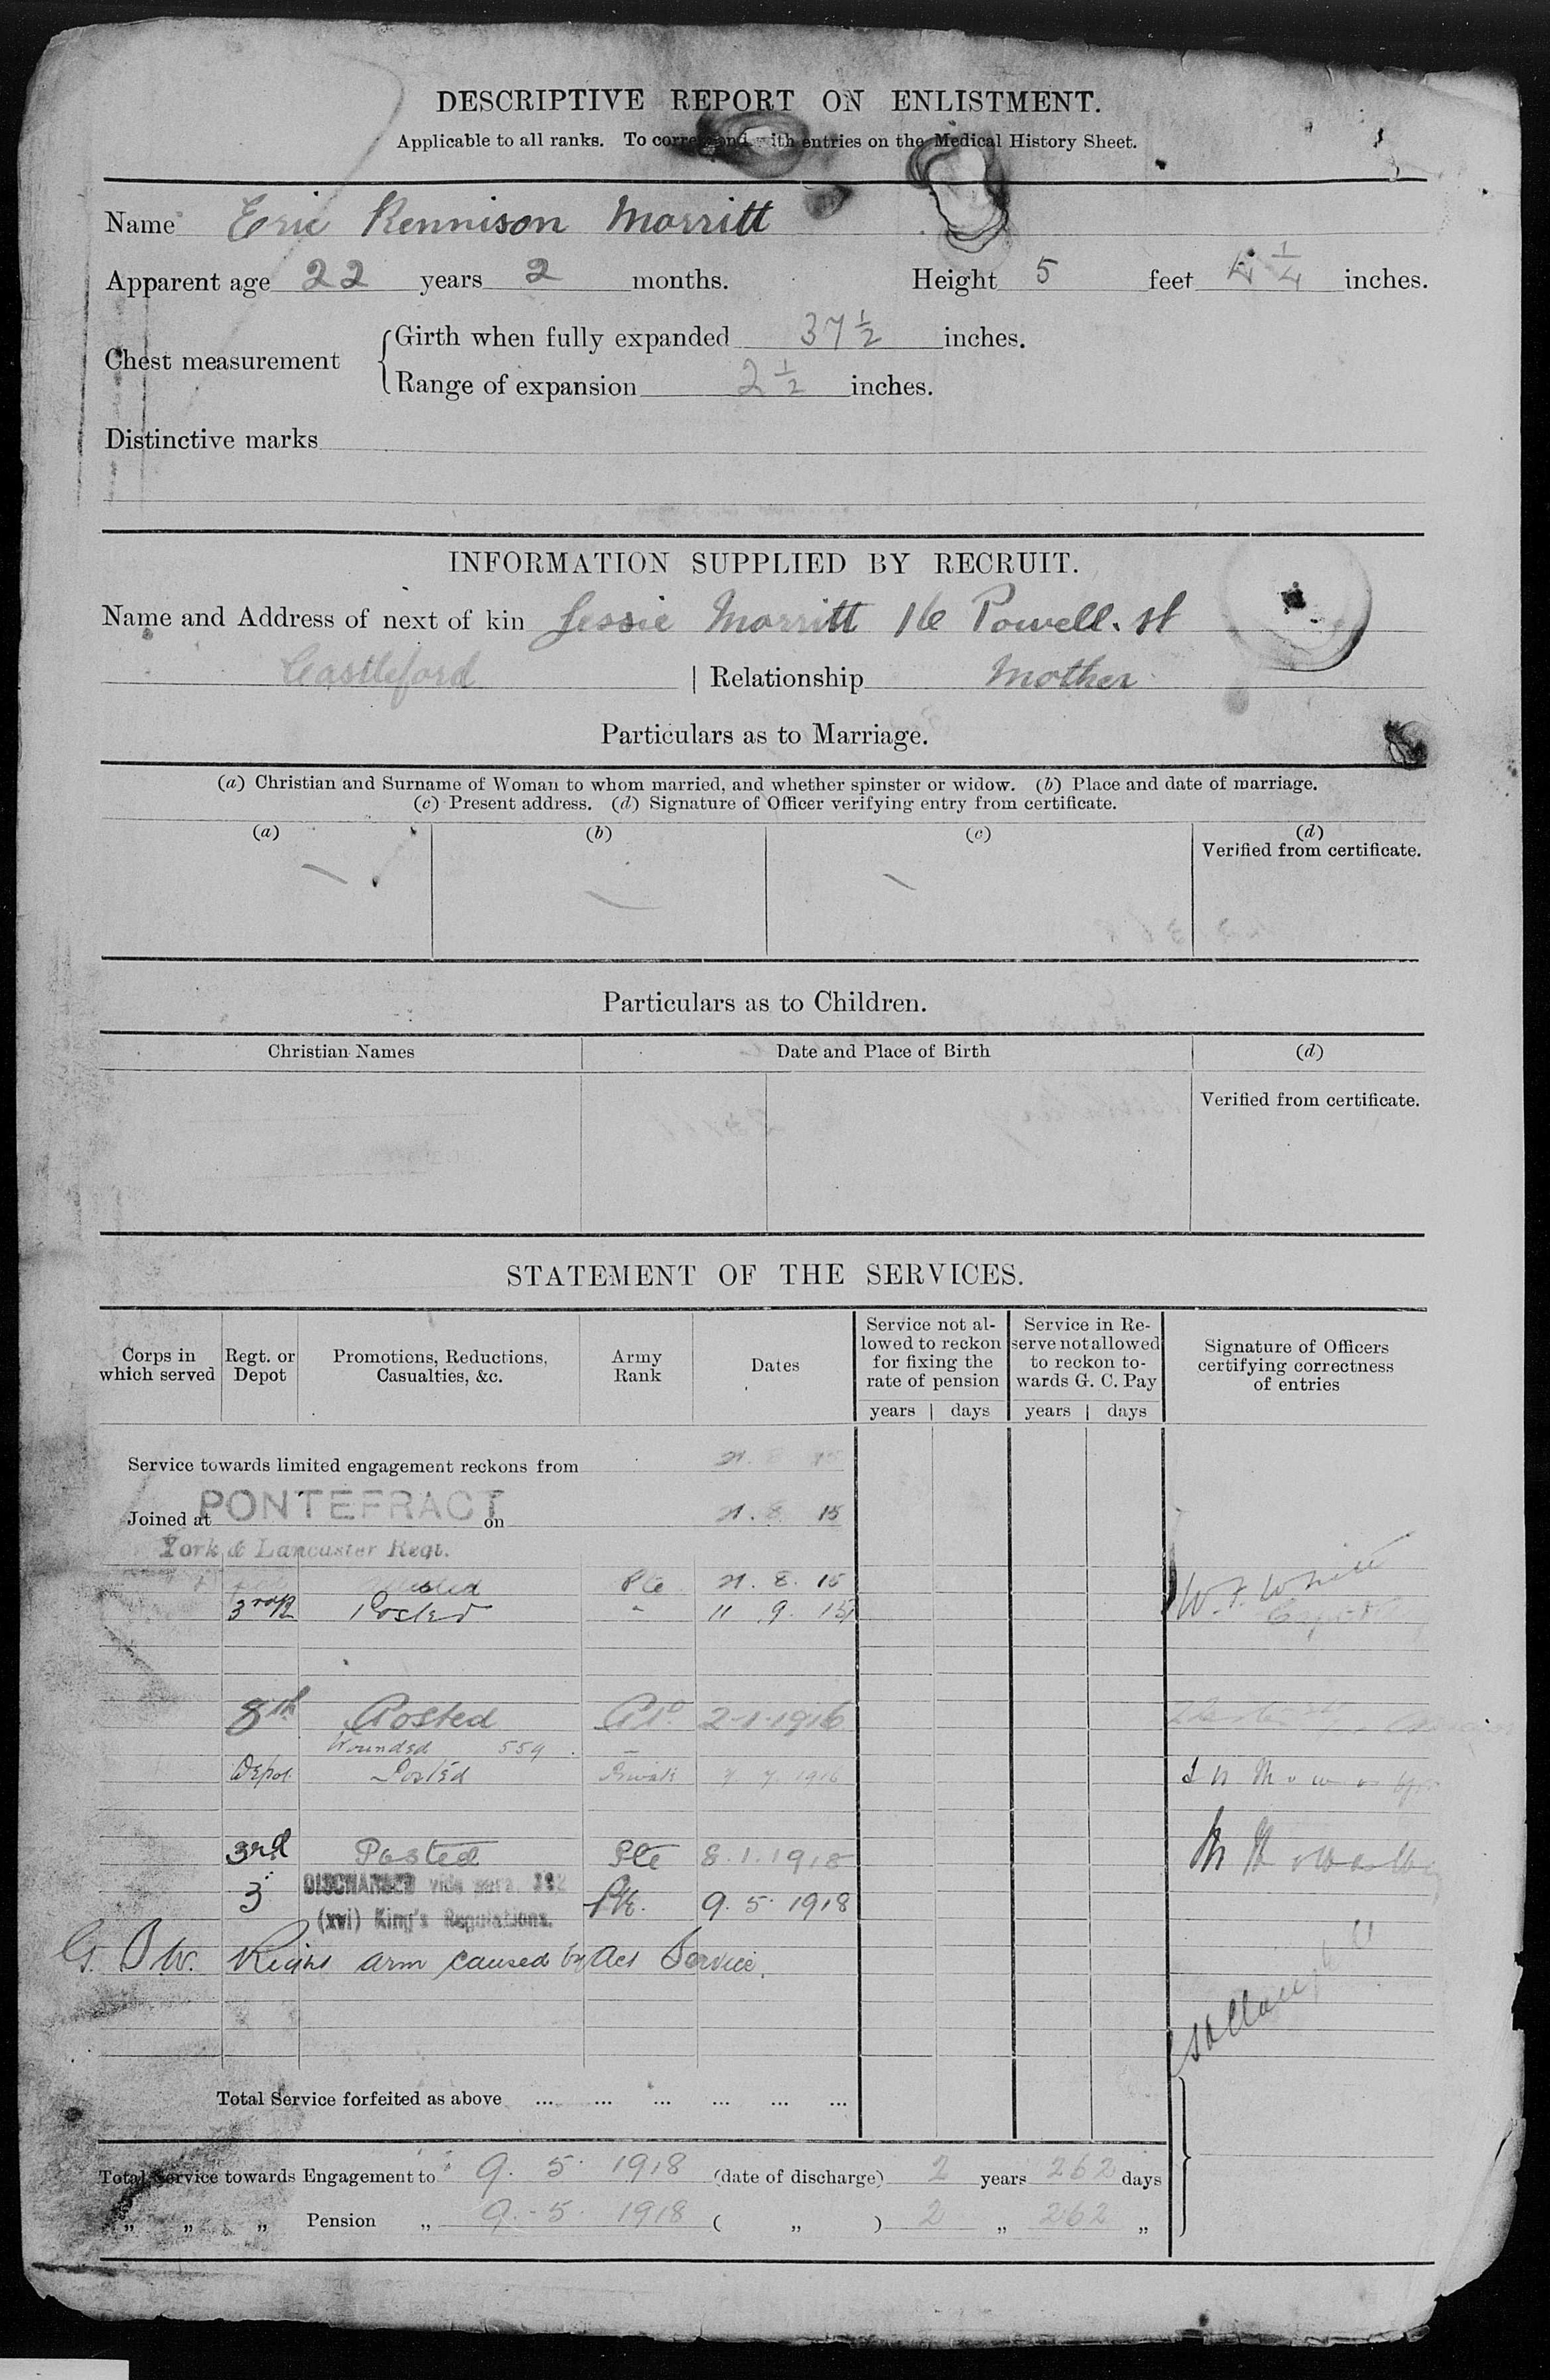 DESCRIPTIVE REPORT ON ENLISTMENT.
Applicable to all ranks. To correspond with entries on the Medical History Sheet.
Name Eric Rennison Morritt
Apparent age 22 years 2 months. Height 5 feet 4 1/4 inches.
Chest measurement
Girth when fully expanded 37 1/2 inches.
Range of expansion 2 1/2 inches.
Distinctive marks
INFORMATION SUPPLIED BY RECRUIT.
Name and Address of next of kin Jessie Morritt 16 Powell. st
Castleford | Relationship Mother
Particulars as to Marriage.
(a) Christian and Surname of Woman to whom married, and whether spinster or widow. (b) Place and date of marriage.
(c) Present address. (d) Signature of Officer verifying entry from certificate.
(a) (b) (c) (d)
Verified from certificate.
Particulars as to Children.
Christian Names Date and Place of Birth (d)
Verified from certificate.
STATEMENT OF THE SERVICES.
Corps in which served Regt. or Depot Promotions, Reductions, Casualties, &c. Army Rank Dates Service not allowed to reckon for fixing the rate of pension Service in Reserve not allowed to reckon towards G. C. Pay Signature of Officers certifying correctness of entries
years | days years | days
Service towards limited engagement reckons from 21. 8 15
Joined at PONTEFRACT on 21. 8 15
York & Lancaster Regt.
Pte 21. 8. 15 W. F. White
3rd Posted " 11 9. 15
8th Posted Pte. 2-1-1916
Wounded
Depot Posted Private 7. 1916
3rd Posted Pte 8.1.1918
3 DISCHARGED vide para. 392 Pte. 9. 5. 1918
(xvi) King's Regulations.
G. S. W. Right arm caused by Act Service.
Total Service forfeited as above ... ... ... ... ... ...
Total Service towards Engagement to 9. 5. 1918 (date of discharge) 2 years 262 days
„ „ „ Pension „ 9. 5. 1918 ( „ ) 2 „ 262 „